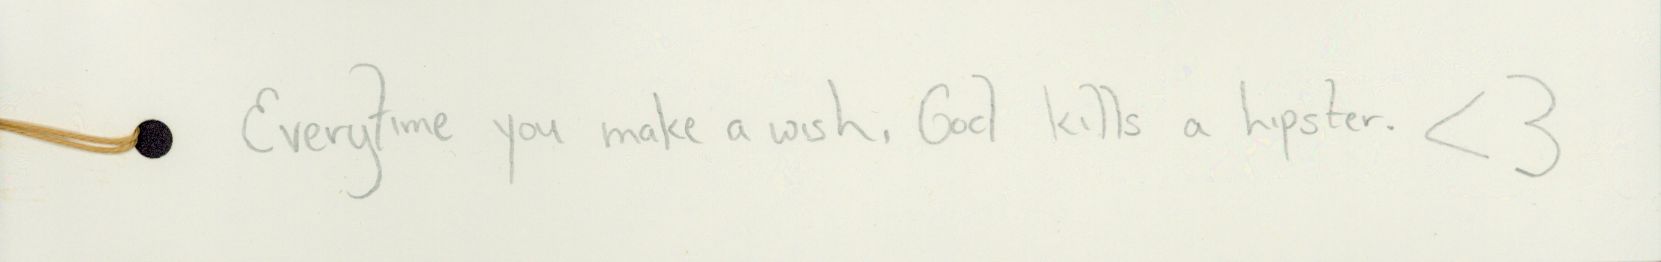 Everytime you make a wish, God kills a hipster. <3